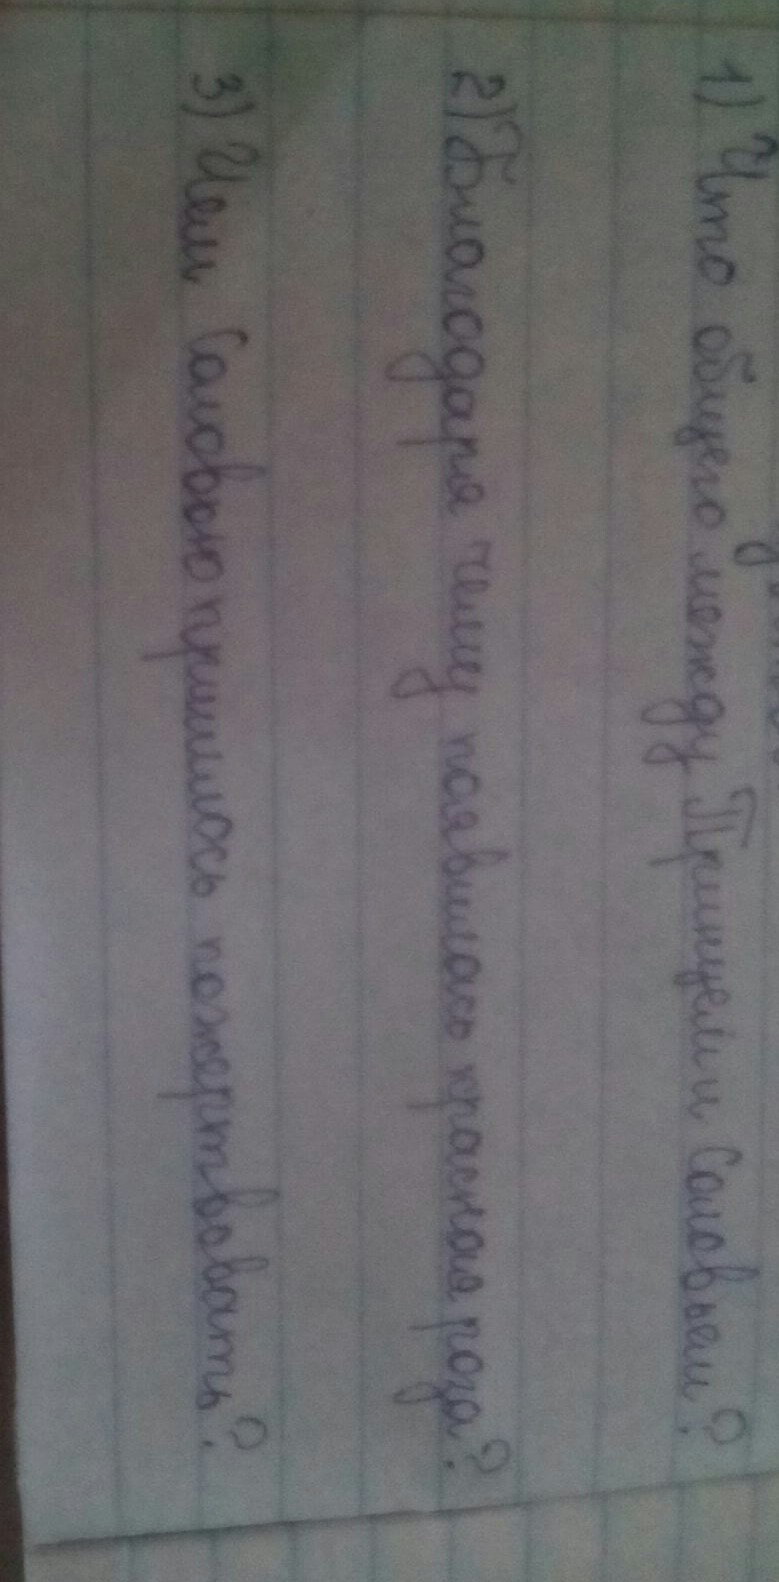 1) Что общего между Принцем и Соловьем?
2) Благодаря чему появилась красная роза?
3) Чем Соловью пришлось пожертвовать?